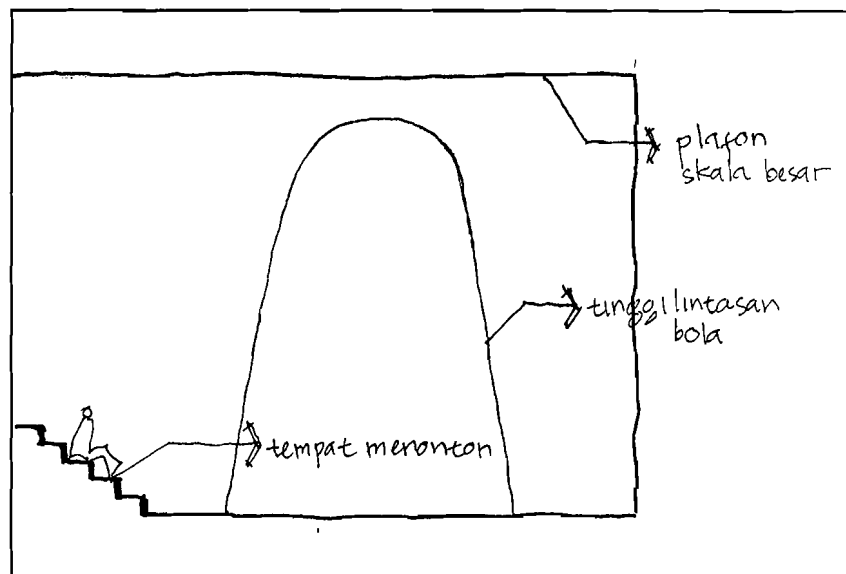 plafon
skala besar
tinggi lintasan
bola
tempat menonton